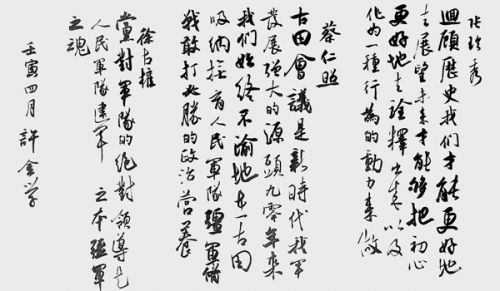 张玲秀
迴顧歷史我们才能更好地
去展望未来才能够把初心
更好地去詮釋出来以及
化为一種行為的動力来做
蔡仁照
古田會議是新時代我軍
发展强大的源頭九零年来
我们始终不渝地在古田
吸纳 育人民軍隊疆軍備
戰敢打必勝的政治营養
徐占權
黨對軍隊的绝對领導是
人民軍隊建軍之本疆軍
之魂
壬寅四月許金学